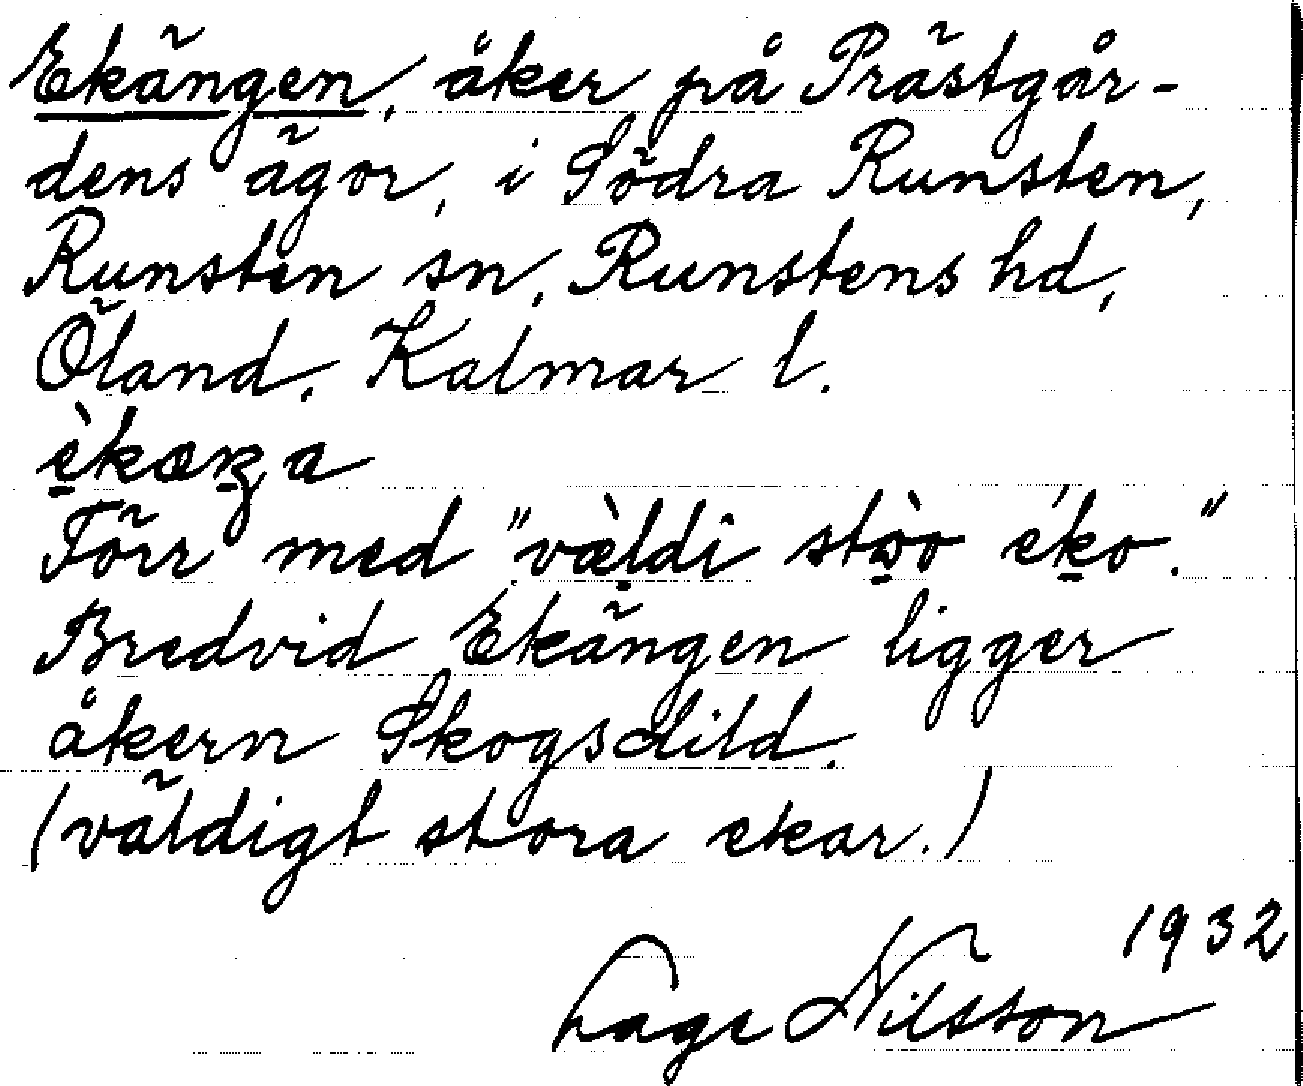 Ekängen, åker på Prästgår-
dens ägor, i Södra Runsten,
Runsten sn, Runstens hd,
Öland, Kalmar l.
Förr med "vældi stòo éko."
Bredvid Ekängen ligger
åkern Skogsdild.
(väldigt stora ekar.)
1932
Lage Nilsson